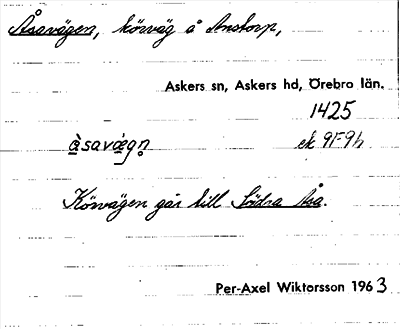 Åsavägen, körväg å Anstorp,
Askers sn, Askers hd, Örebro län.
1425
ek 9F9h
åsavägn
Körvägen går till Södra Åsa.
Per-Axel Wiktorsson 1963